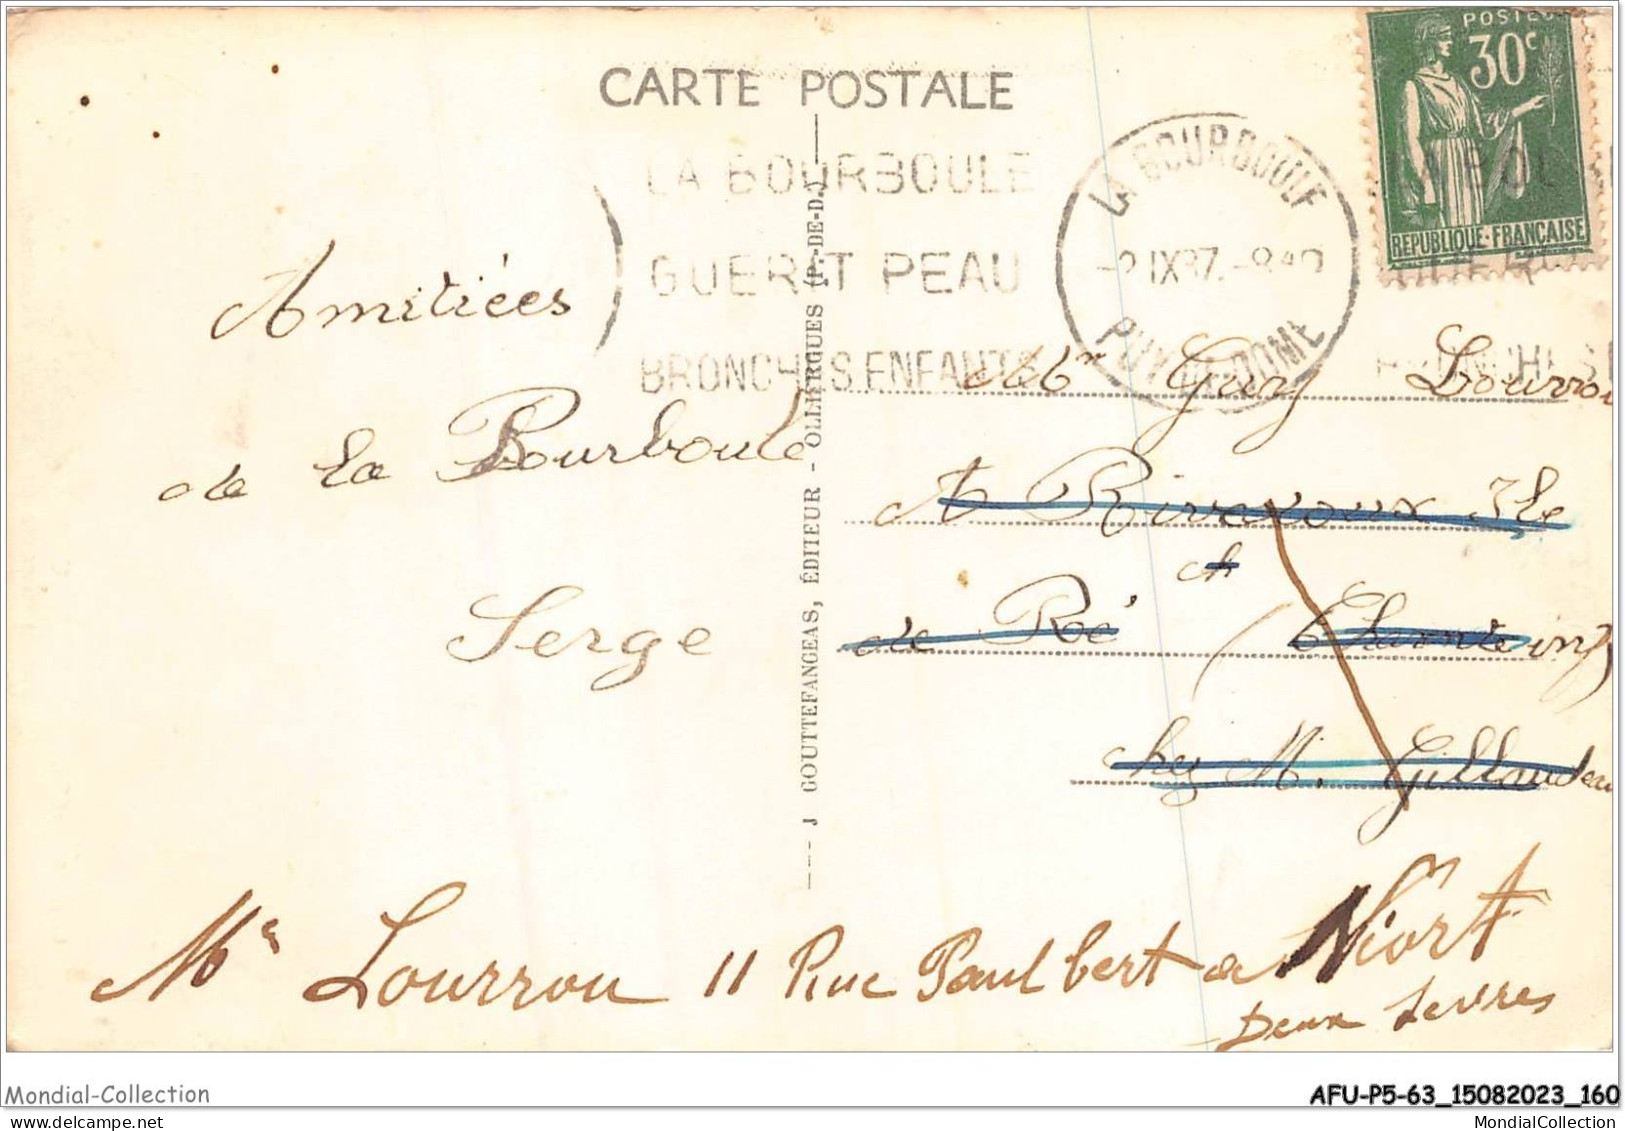 CARTE POSTALE
POSTES
30c
REPUBLIQUE-FRANÇAISE
LA BOURBOULE
GUERIT PEAU
BRONCHES.ENFANTS
LA BOURBOULE
-2 IX 37.-840
PUY-DE-DOME
Amitiées
de La Bourboule
Serge
J GOUTTEFANGEAS, ÉDITEUR - OLLIERGUES (P.-DE-D.)
Mr Guy Lourrou
A Rivedoux Ile
de Ré
chez M. Gillaudeau
Me Lourrou 11 Rue Paul bert a Niort
Deux Sevres
Mondial-Collection
AFU-P5-63_15082023_160
MondialCollection